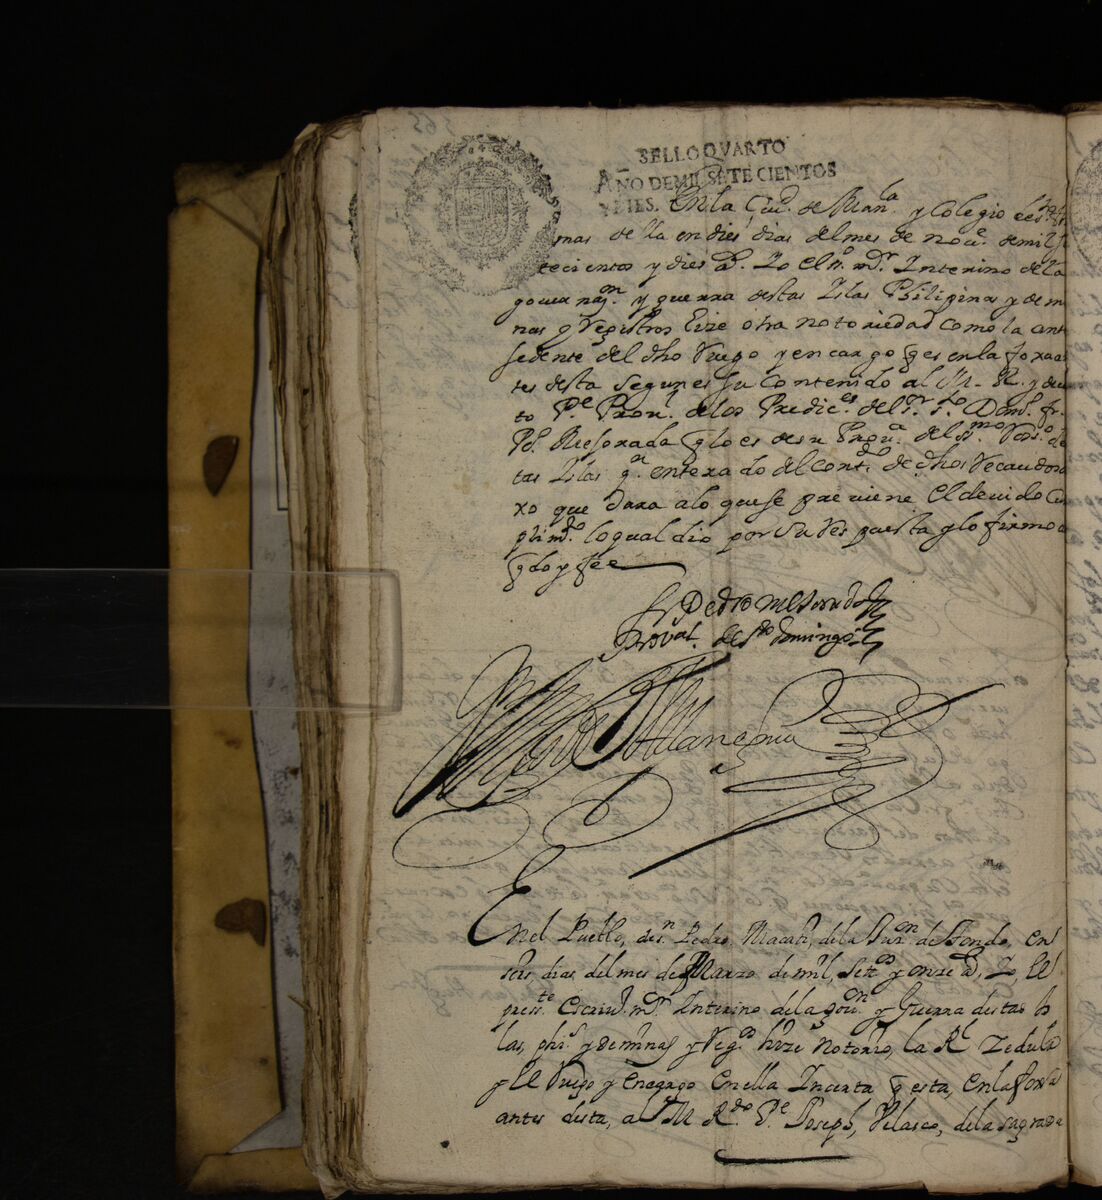 SELLO QVARTO
AÑO DE MIL SETECIENTOS
Y DIES.
En la Ciud. de Manla. y Colegio de sto
mas de ella en dies dias del mes de nove. de mil se
tecientos y dies as. Yo el sno. mor. Interino de la
governasn. y guerra destas Islas Philipinas y de mi
nas y Registros hize otra notoriedad como la ante
sedente del dho Ruego y encargo qes en la foxa an
tes desta segun es su contenido al M. R. y devo
to Pe. Provl. de los Predices. del Sr. Sto. Domo. fr.
Po. Mesorada qlo es desu Prova. del Ssmo. Rosro. des
tas Islas qn. enterado del contdo. de dho
xo que dara a lo que se previene el devido Cum
plimto. lo qual dio por su respuesta y lo firmo de
q doy fee
fr Pedro Mesorado
Proval. de sto domingo
Miguel de Allanegui
En el Pueblo, de sn. Pedro Macati, de la Jurn. de tondo, en
seis, dias del mes de Marzo de mil, Setos y onze as, Yo el
preste. escrivo. mor. Interino de la govon. y Guerra destas Is
las, phis. y de minas y Regos hize Notorio, la Rl. Zedula
y el Ruego y encargo en ella Incerta q esta, en la foxa
antes desta, al M Rdo. Pe. Joseph, Velasco, de la sagrada